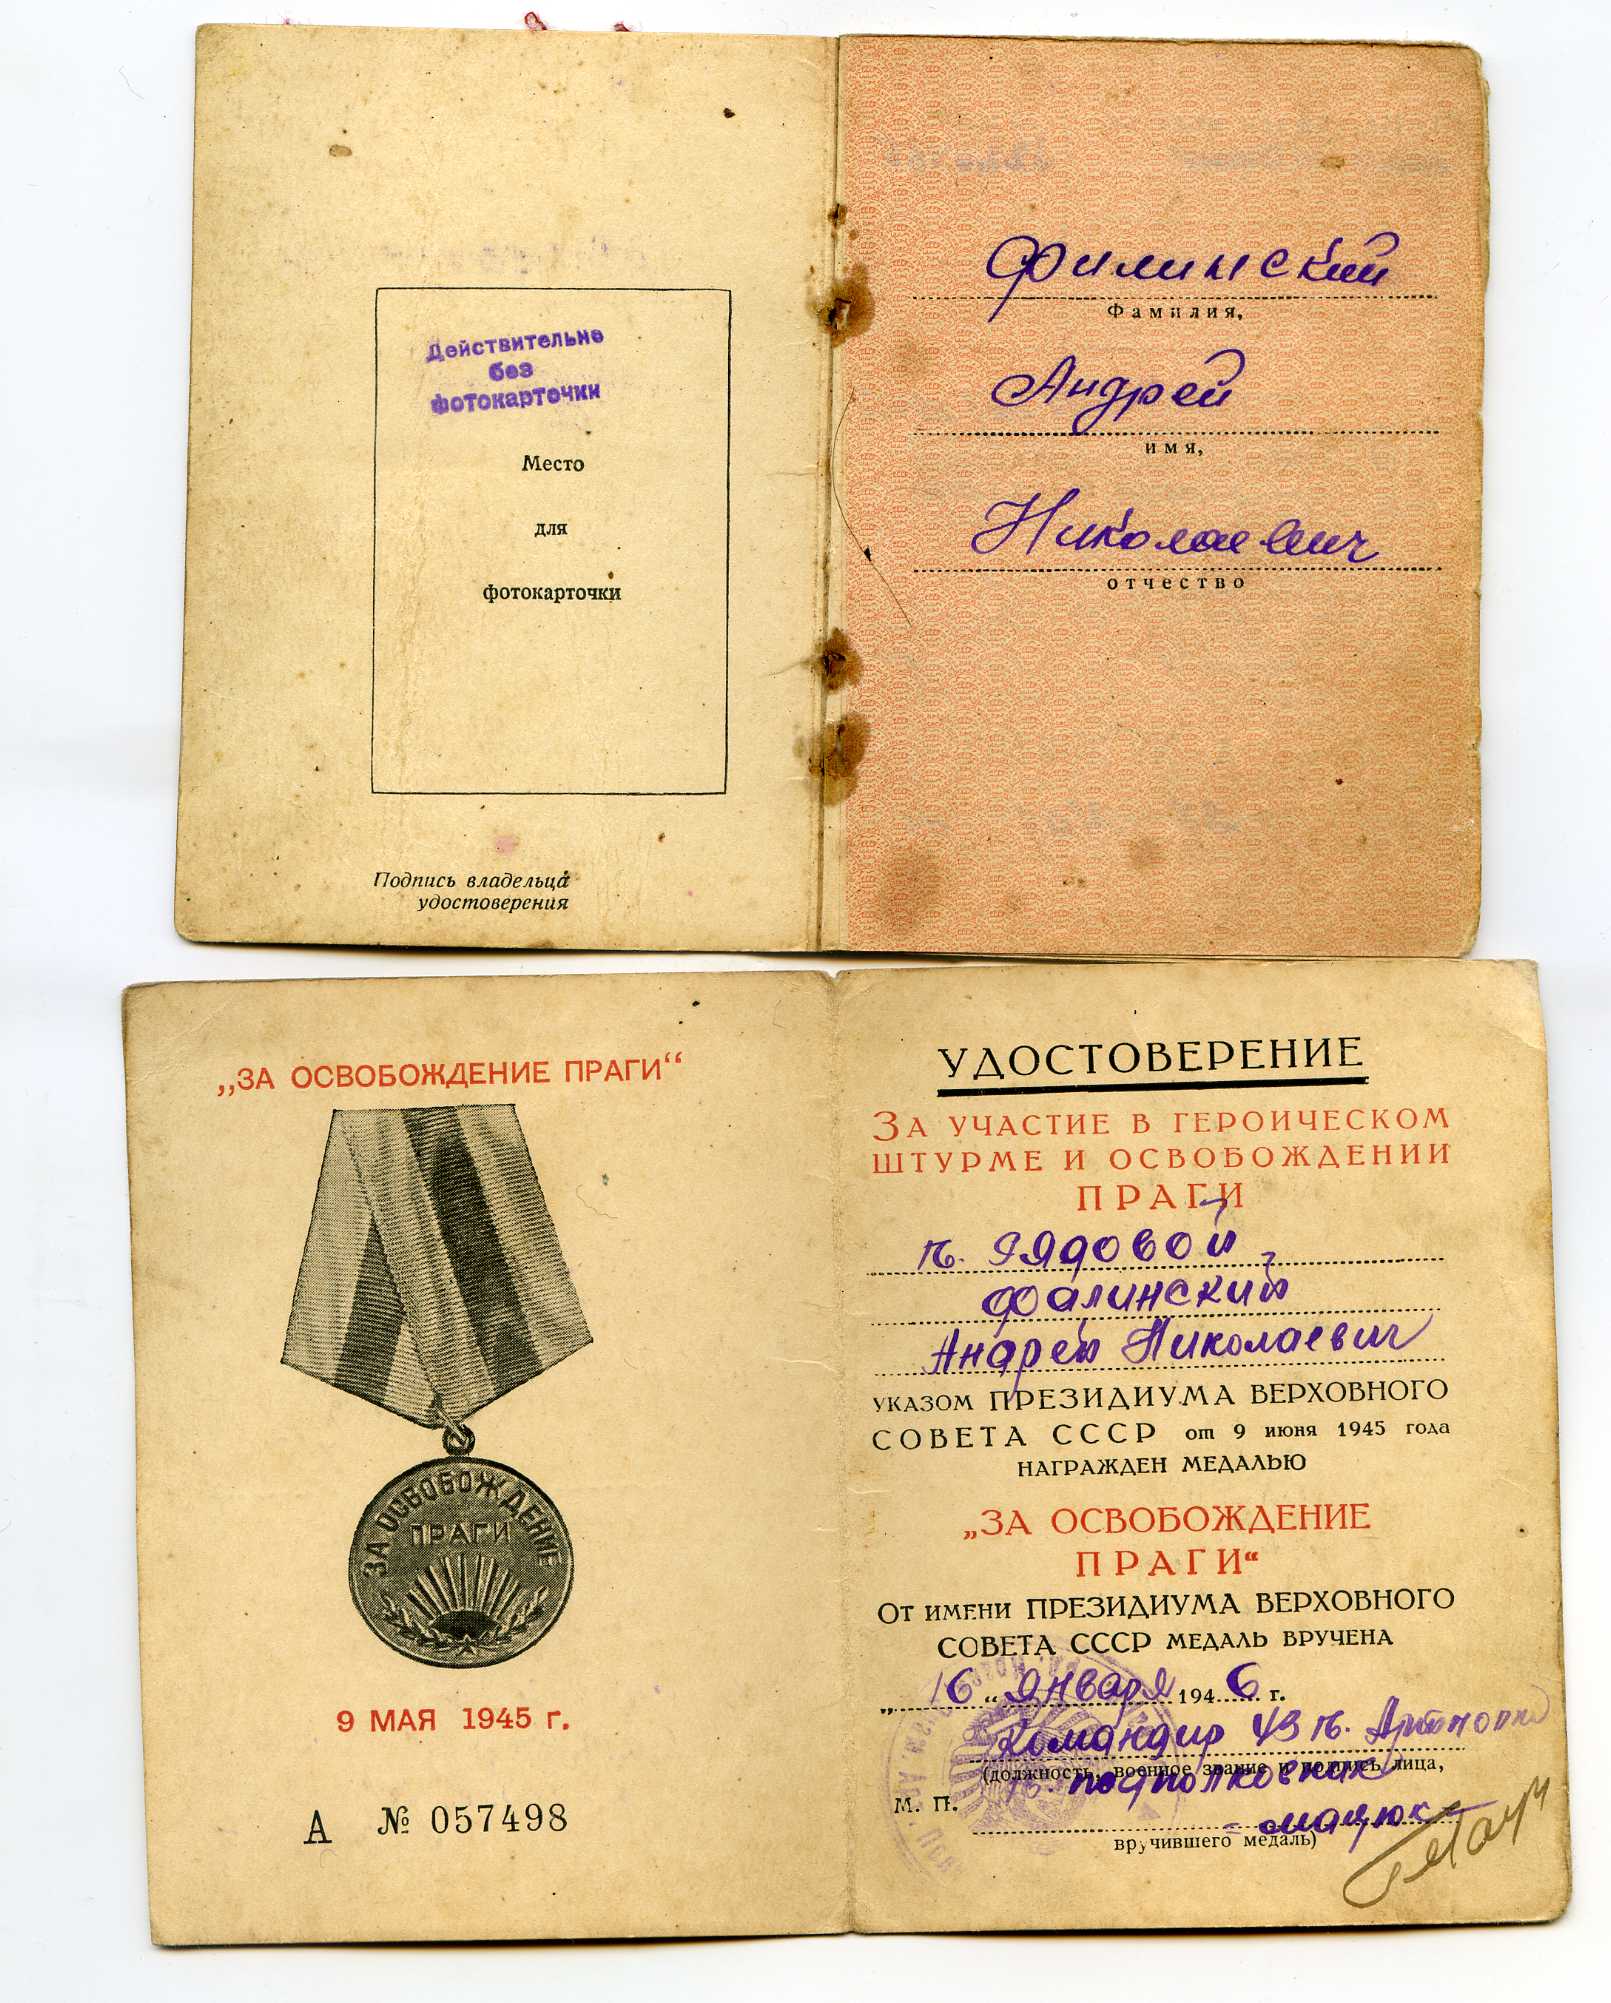 Действительно
без
фотокарточки
Место
для
фотокарточки
Подпись владельца
удостоверения
Филинский
Фамилия,
Андрей
имя,
Николаевич
отчество
„ЗА ОСВОБОЖДЕНИЕ ПРАГИ“
ЗА ОСВОБОЖДЕНИЕ
ПРАГИ
9 МАЯ 1945 г.
А № 057498
УДОСТОВЕРЕНИЕ
ЗА УЧАСТИЕ В ГЕРОИЧЕСКОМ
ШТУРМЕ И ОСВОБОЖДЕНИИ
ПРАГИ
гв. рядовой
Фалинский
Андрей Николаевич
УКАЗОМ ПРЕЗИДИУМА ВЕРХОВНОГО
СОВЕТА СССР от 9 июня 1945 года
НАГРАЖДЕН МЕДАЛЬЮ
„ЗА ОСВОБОЖДЕНИЕ
ПРАГИ“
ОТ ИМЕНИ ПРЕЗИДИУМА ВЕРХОВНОГО
СОВЕТА СССР МЕДАЛЬ ВРУЧЕНА
„16“ января 1946 г.
Командир 43 гв.
(должность, военное звание и подпись лица,
гв. подполковник
М. П.
вручившего медаль)